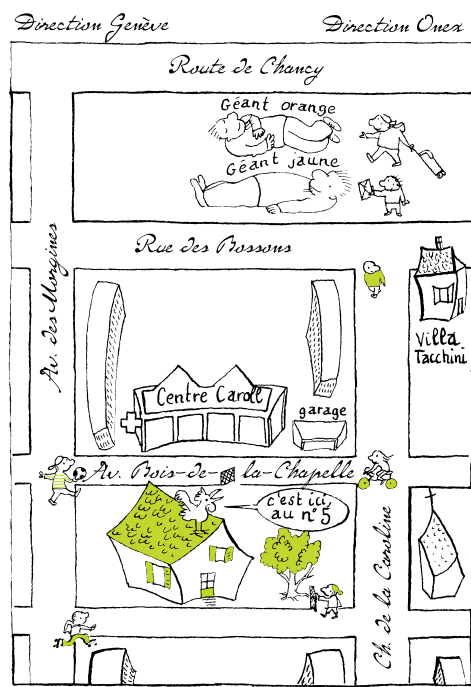 Direction Genève
Direction Onex
Route de Chancy
Géant orange
Géant jaune
Rue des Bossons
Av. des Morgines
Villa
Tacchini
Centre Caroll
garage
Av. Bois-de-la-Chapelle
c'est ici,
au n° 5
Ch. de la Caroline